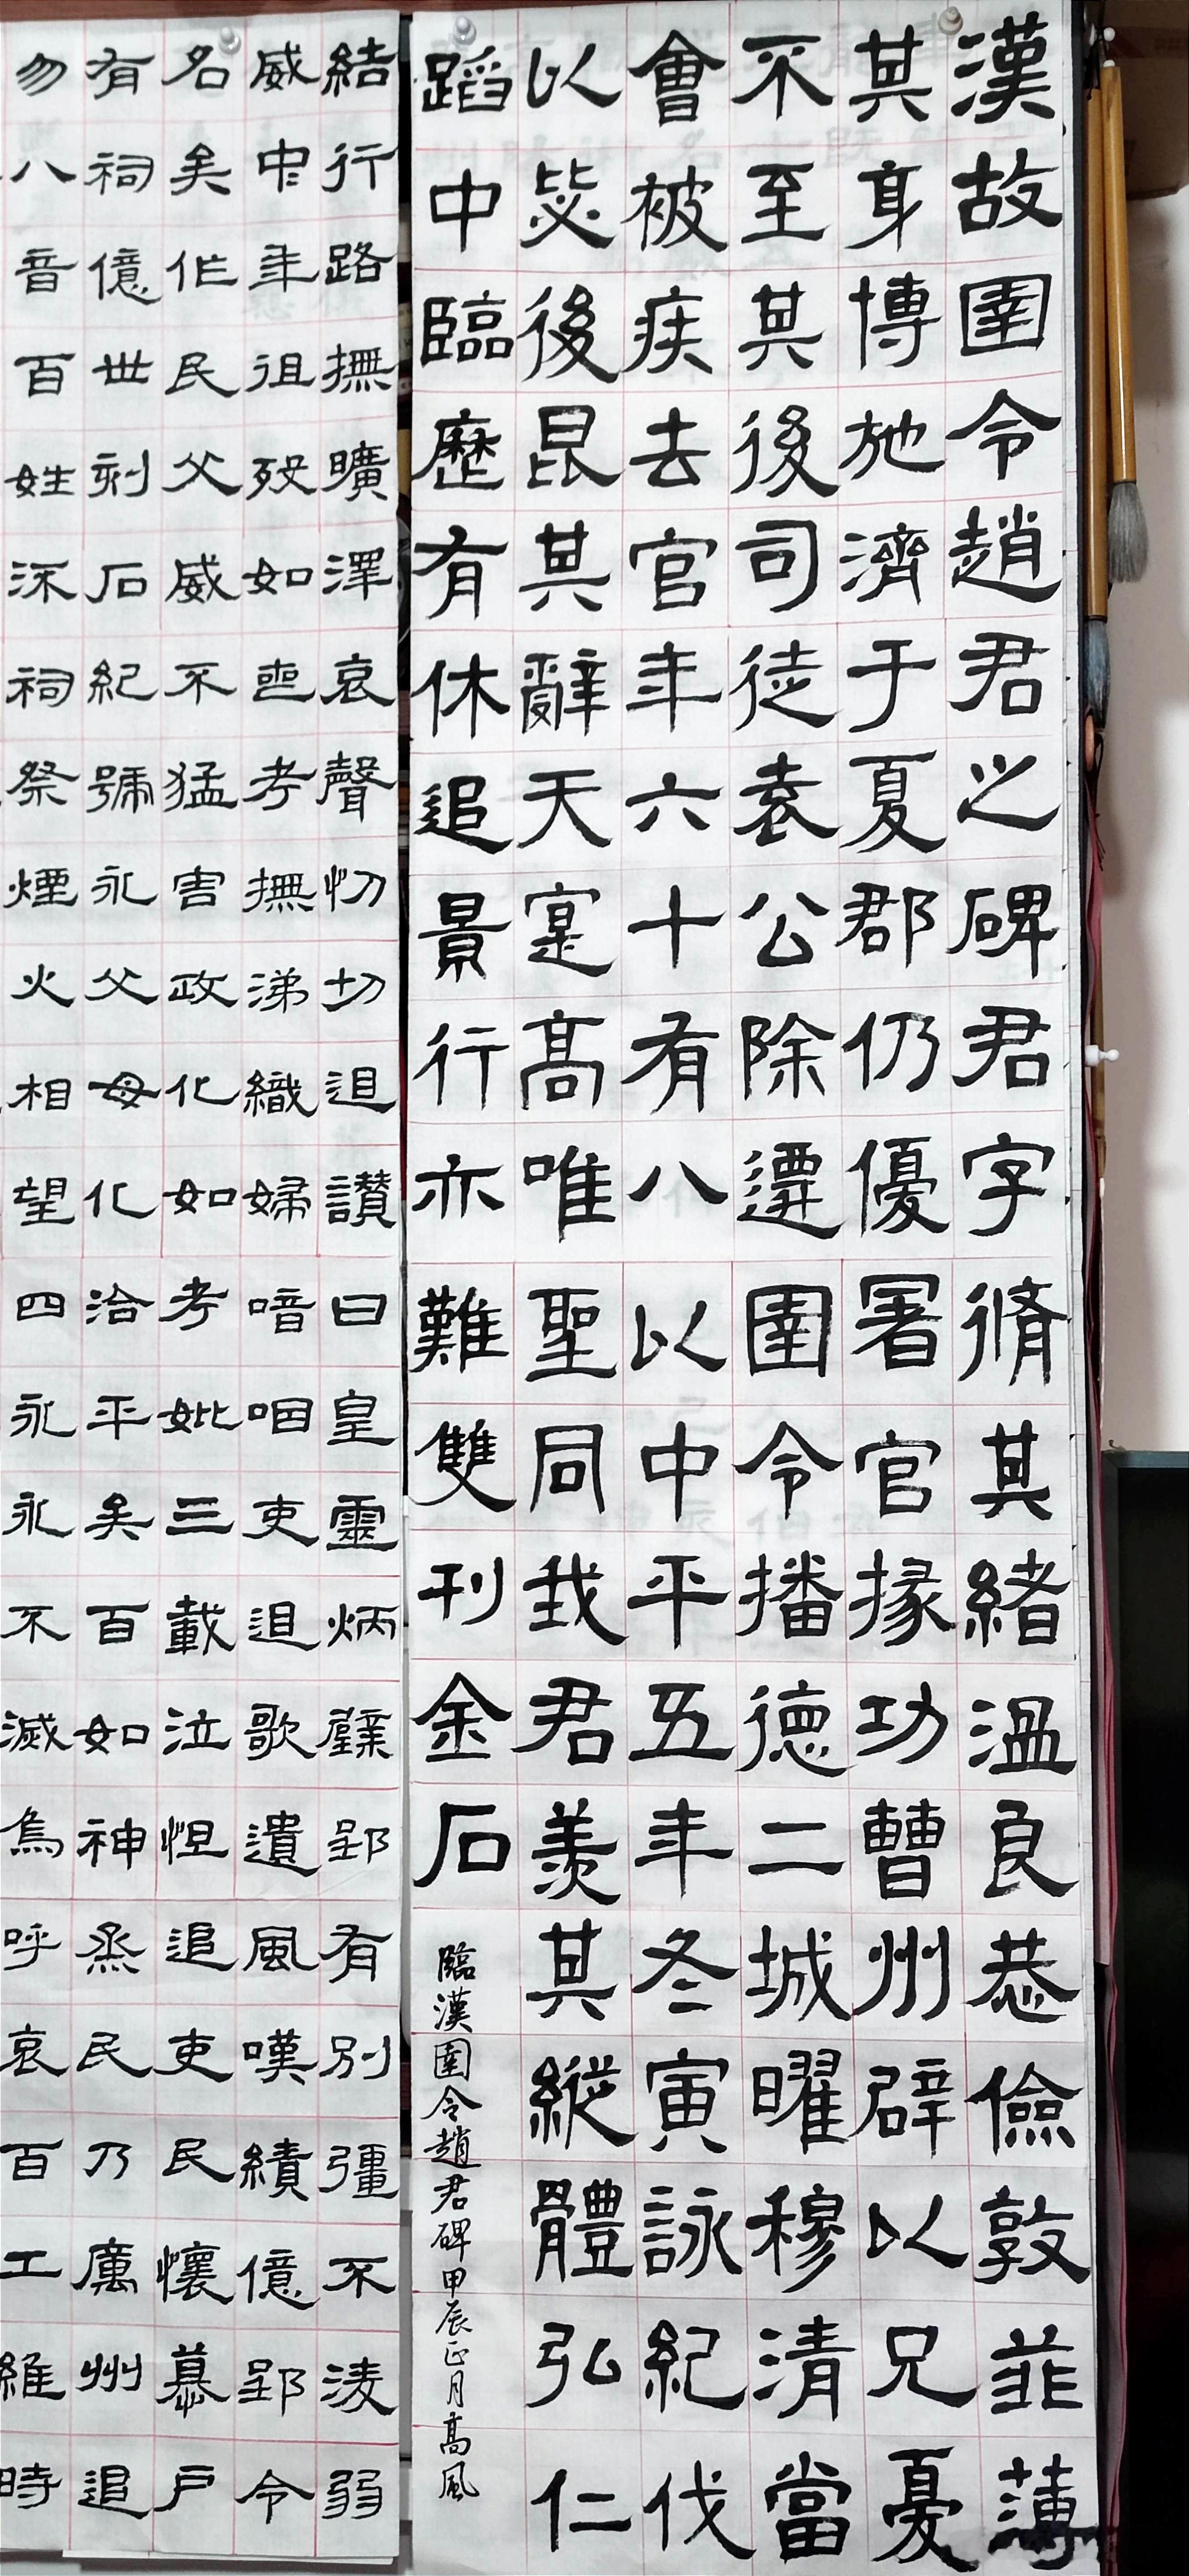 漢故圉令趙君之碑君字脩其緒溫良恭儉敦菲薄
其身博施濟于夏郡仍優署官掾功曹州辟以兄憂
不至其後司徒袁公除遷圉令播德二城曜穆清當
會被疾去官年六十有八以中平五年冬寅詠紀伐
以毖後昆其辭天寔高唯聖同我君羨其縱體弘仁
蹈中臨歷有休追景行亦難雙刊金石
臨漢圉令趙君碑甲辰正月高風
結行路撫曠澤哀聲忉切追讃曰皇靈炳璧郢有別彊不淩弱
威中年徂歿如喪考撫涕織婦喑咽吏追歌遺風嘆績億郢令
名矣作民父威不猛害政化如考妣三載泣怛追吏民懷慕戶
有祠億世刻石紀號永父母化洽平矣百如神烝民乃厲州追
勿八音百姓深祠祭煙火相望四永永不滅烏呼哀百工維時